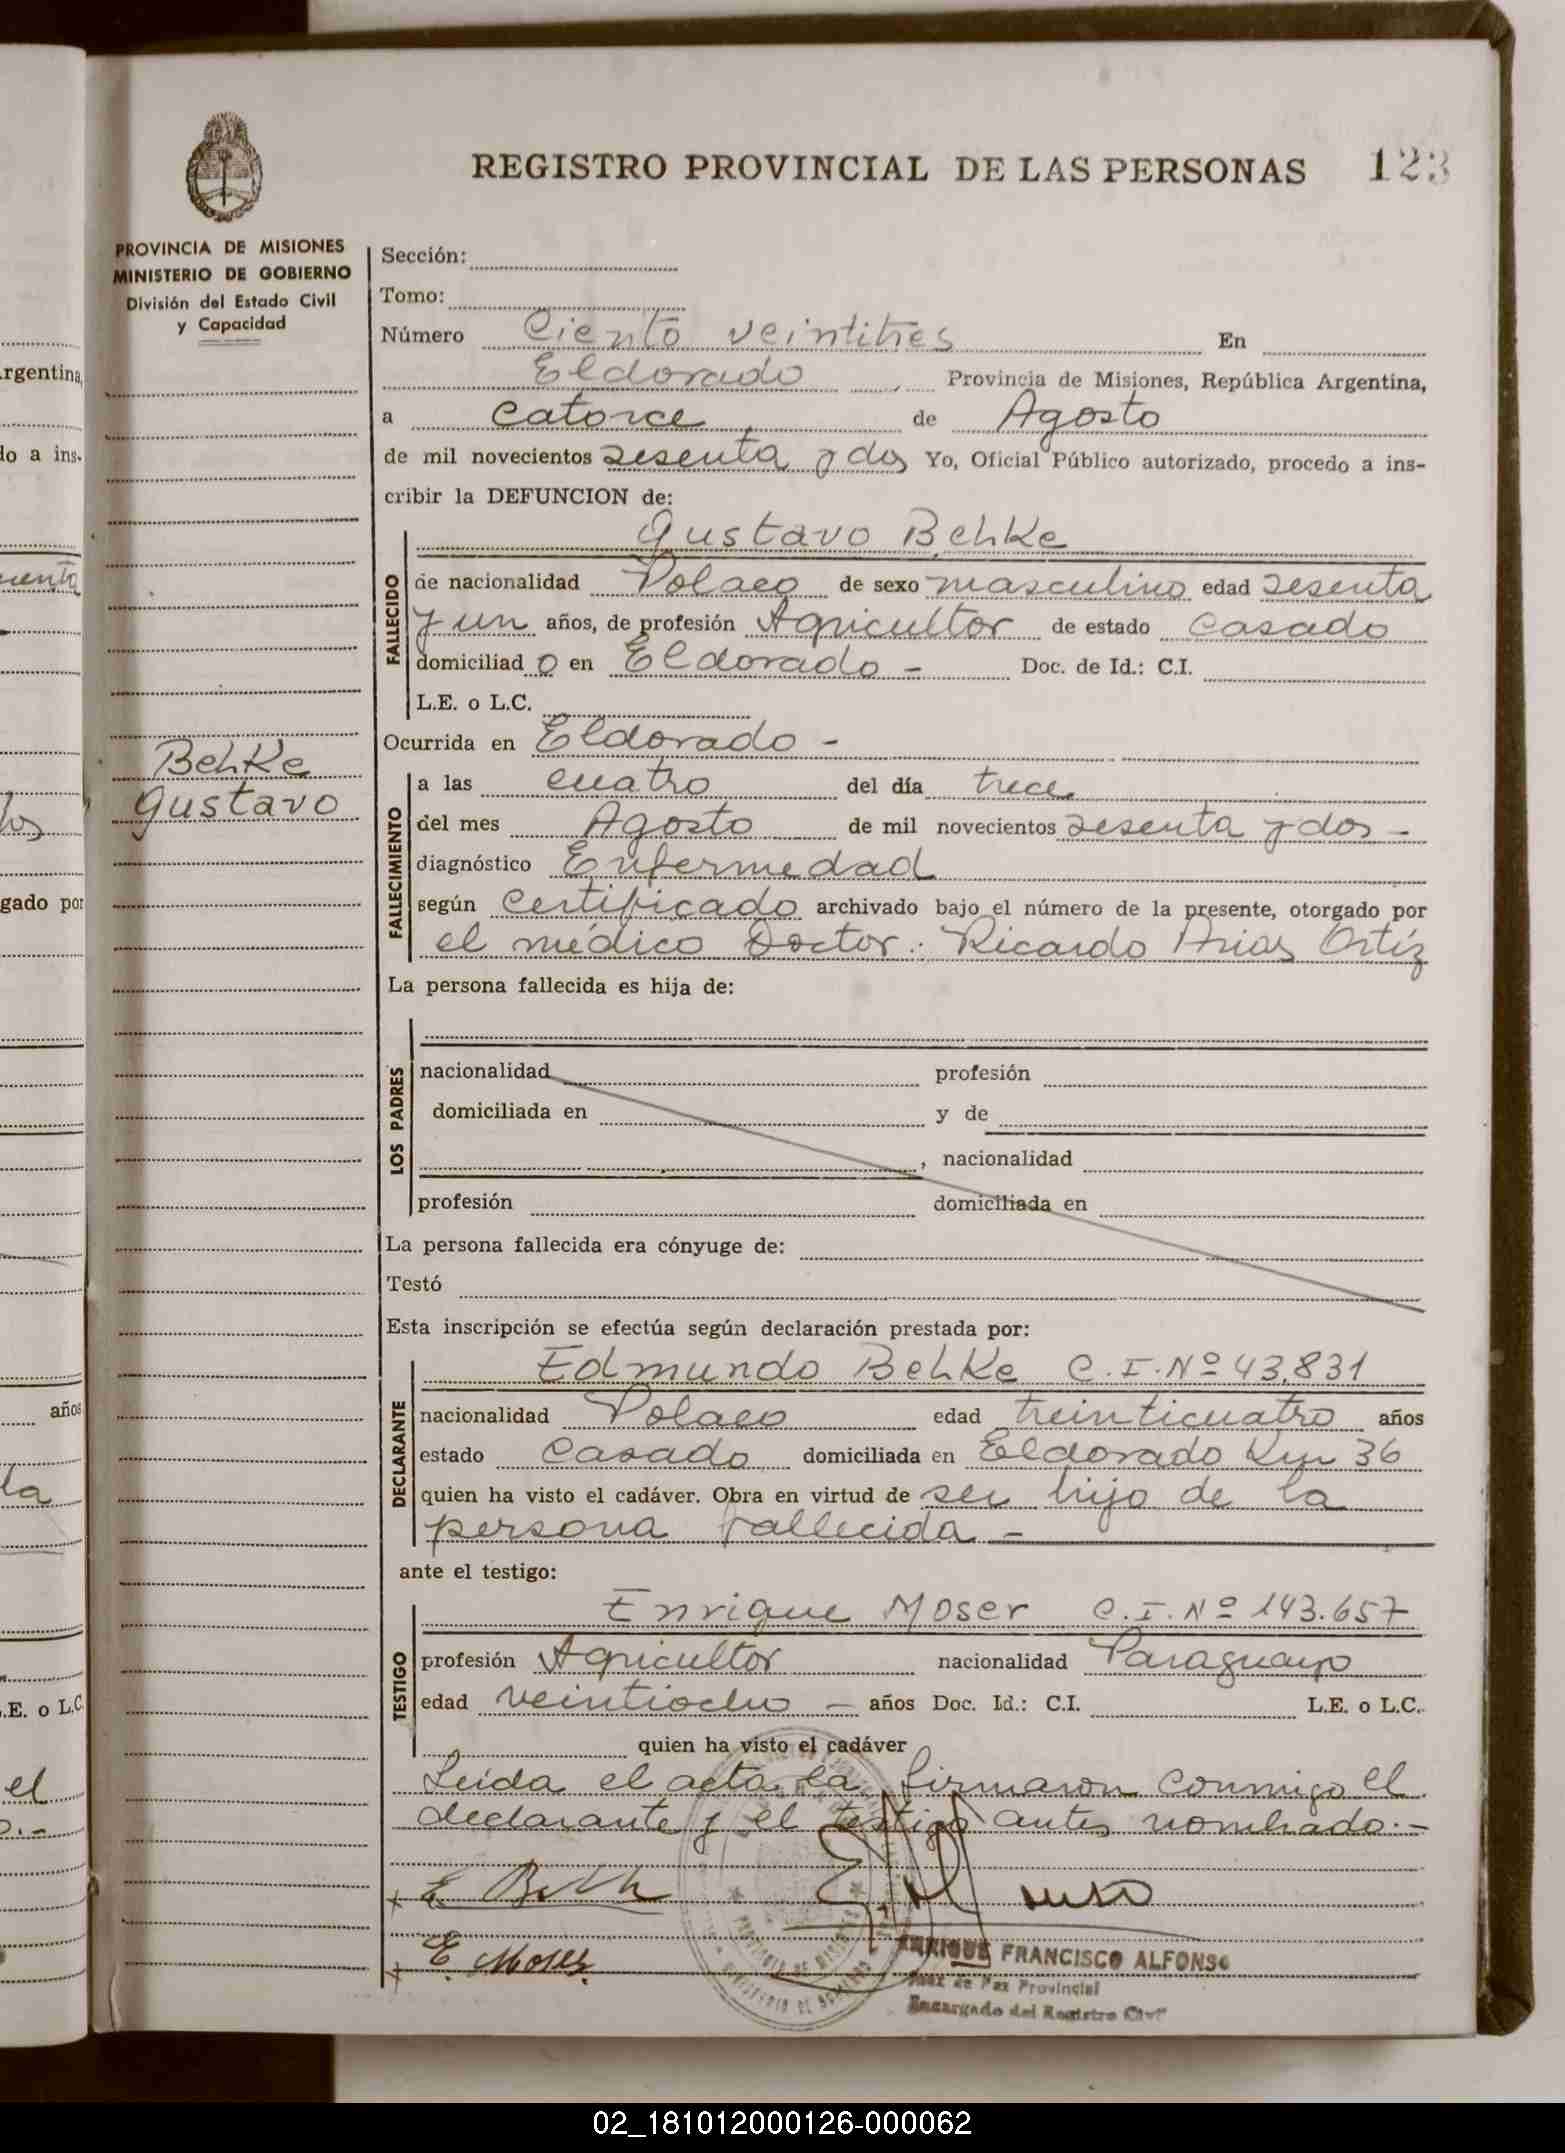 REGISTRO PROVINCIAL DE LAS PERSONAS 123
PROVINCIA DE MISIONES
MINISTERIO DE GOBIERNO
División del Estado Civil
y Capacidad
Sección:
Tomo:
Número Ciento veintitres En
Eldorado Provincia de Misiones, República Argentina,
a catorce de Agosto
de mil novecientos sesenta y dos Yo, Oficial Público autorizado, procedo a ins-
cribir la DEFUNCION de:
Gustavo Behke
FALLECIDO
de nacionalidad Polaco de sexo masculino edad sesenta
y un años, de profesión Agricultor de estado Casado
domiciliad o en Eldorado - Doc. de Id.: C.I.
L.E. o L.C.
Behke
Gustavo
Ocurrida en Eldorado -
FALLECIMIENTO
a las cuatro del día trece
del mes Agosto de mil novecientos sesenta y dos -
diagnóstico Enfermedad
según Certificado archivado bajo el número de la presente, otorgado por
el médico Doctor: Ricardo Arias Ortíz
La persona fallecida es hija de:
LOS PADRES
nacionalidad profesión
domiciliada en y de
, nacionalidad
profesión domiciliada en
La persona fallecida era cónyuge de:
Testó
Esta inscripción se efectúa según declaración prestada por:
DECLARANTE
Edmundo Behke C.I.Nº 43.831
nacionalidad Polaco edad treinticuatro años
estado Casado domiciliada en Eldorado Km 36
quien ha visto el cadáver. Obra en virtud de ser hijo de la
persona fallecida -
ante el testigo:
TESTIGO
Enrique Moser C.I.Nº 143.657
profesión Agricultor nacionalidad Paraguayo
edad veintiocho - años Doc. Id.: C.I. L.E. o L.C.
quien ha visto el cadáver
Leida el acta la firmaron conmigo el
declarante y el testigo antes nombrado.-
E. Moser
ENRIQUE FRANCISCO ALFONSO
Juez de Paz Provincial
Encargado del Registro Civil
rgentina,
do a ins-
gado por
años
la
.E. o L.C.
el
02_181012000126-000062